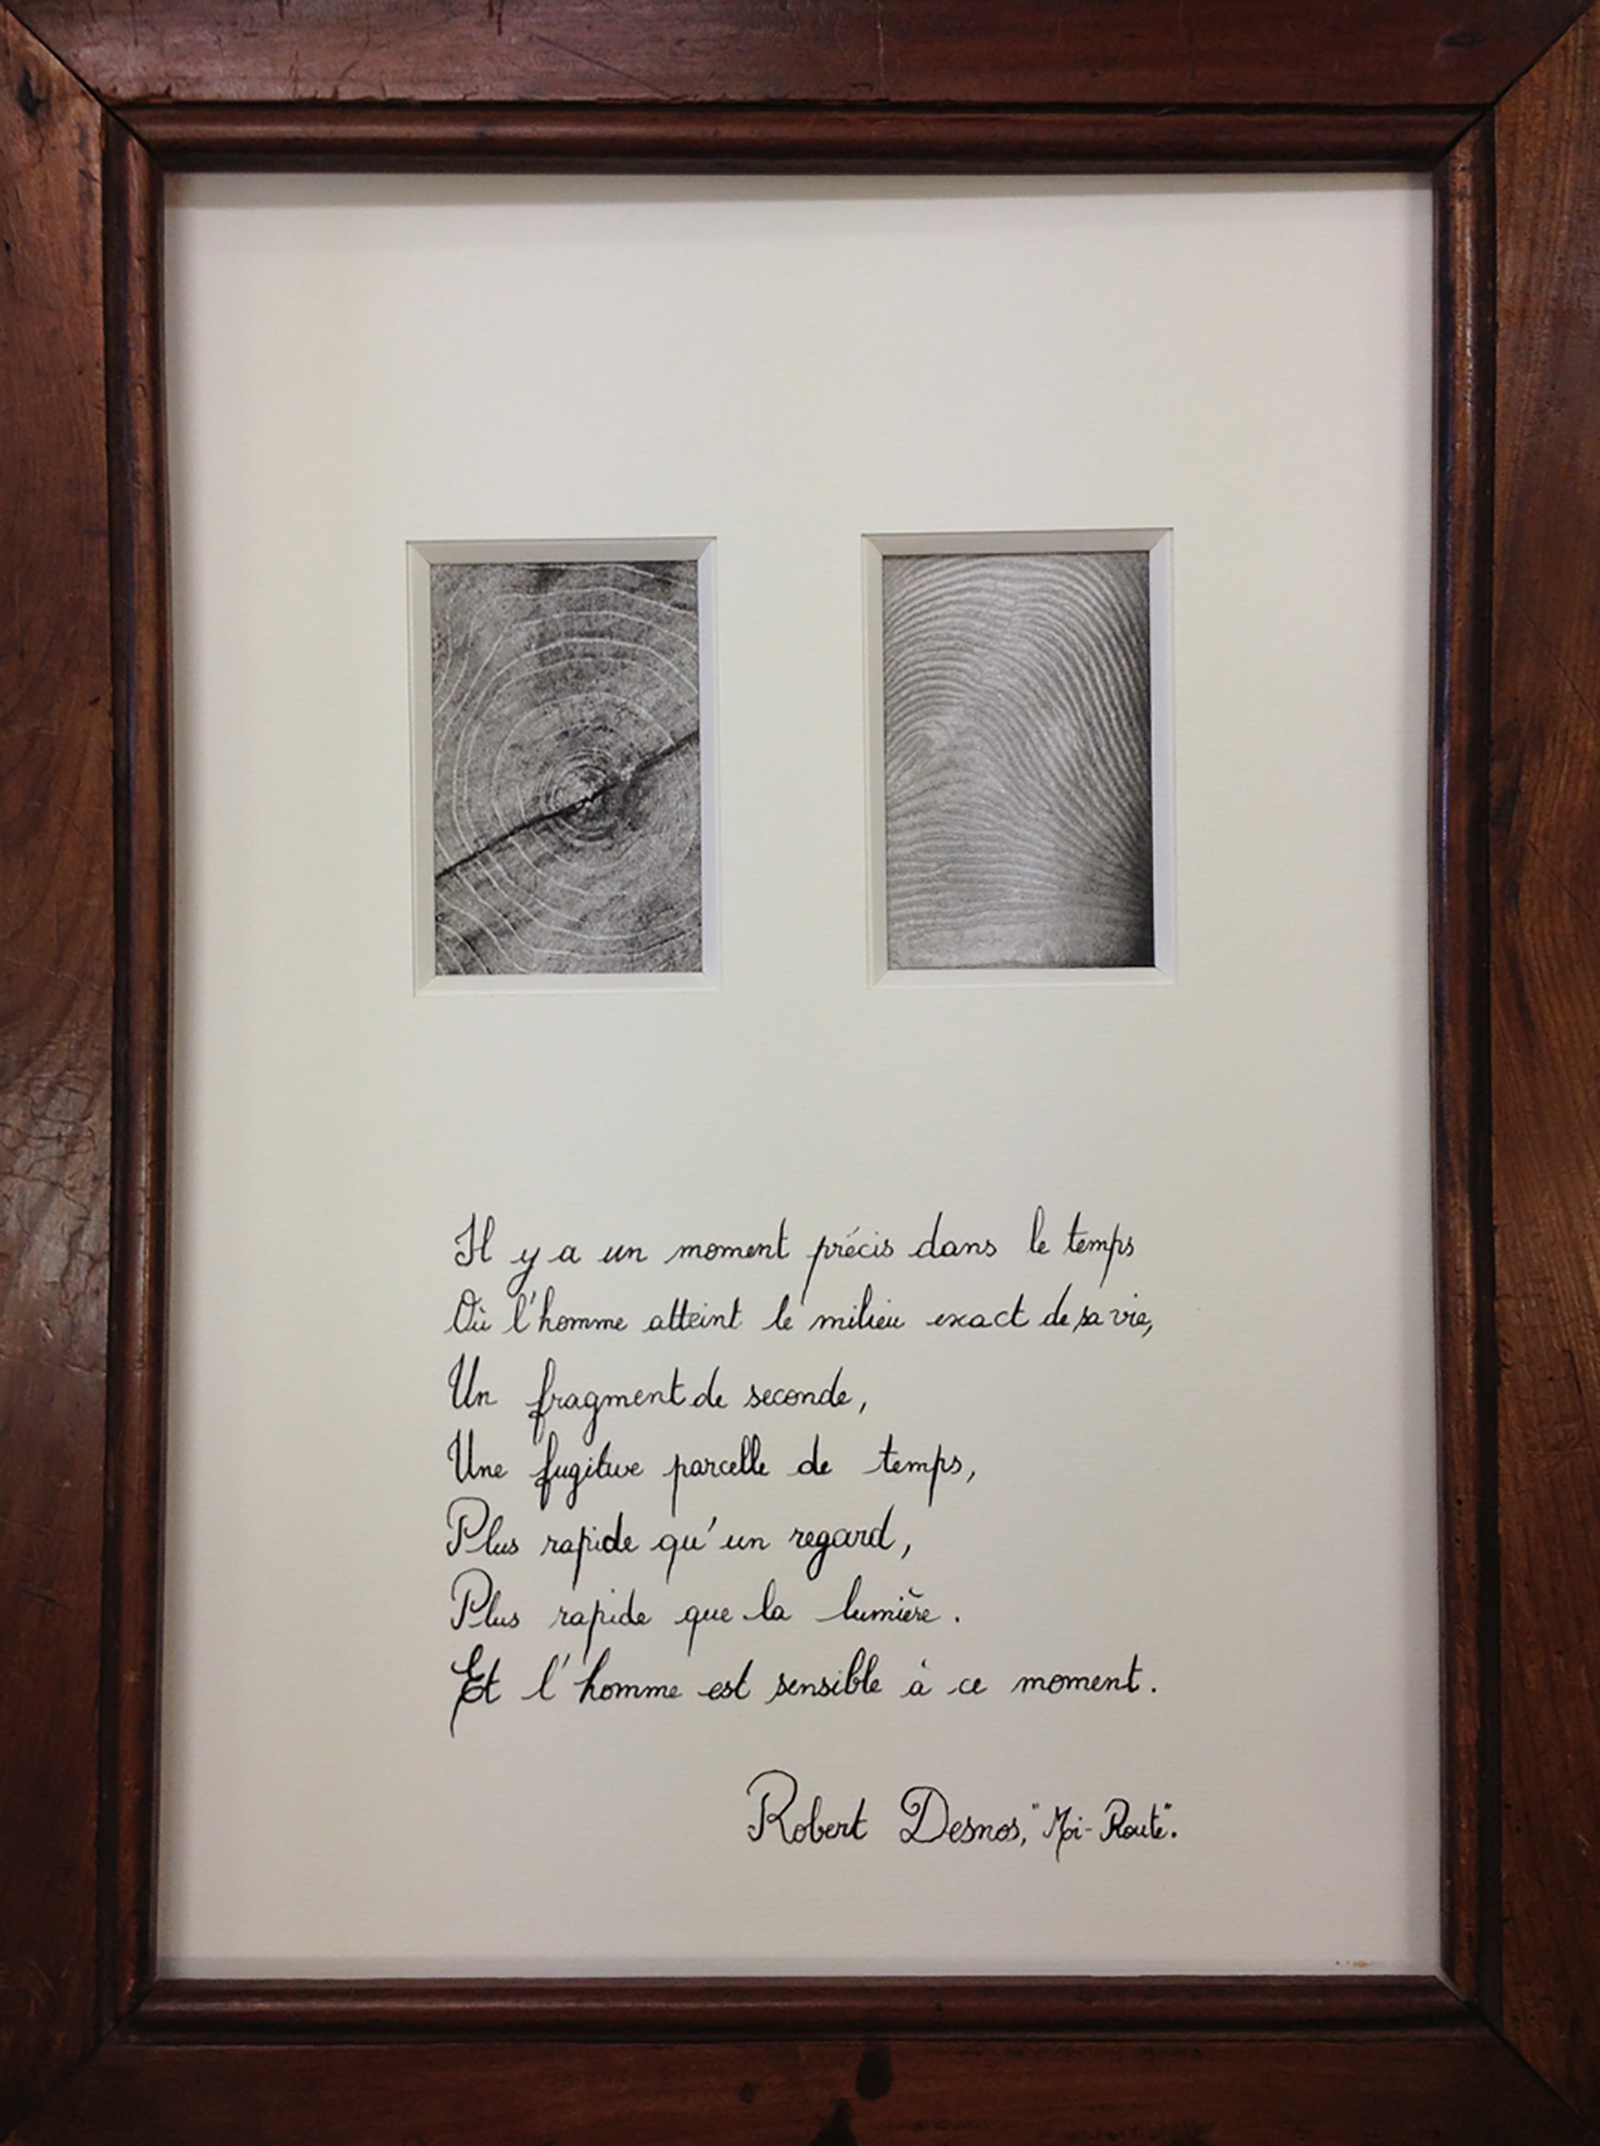 Il y a un moment précis dans le temps
Où l'homme atteint le milieu exact de sa vie,
Un fragment de seconde,
Une fugitive parcelle de temps,
Plus rapide qu'un regard,
Plus rapide que la lumière.
Et l'homme est sensible à ce moment.
Robert Desnos, "Mi-Route".